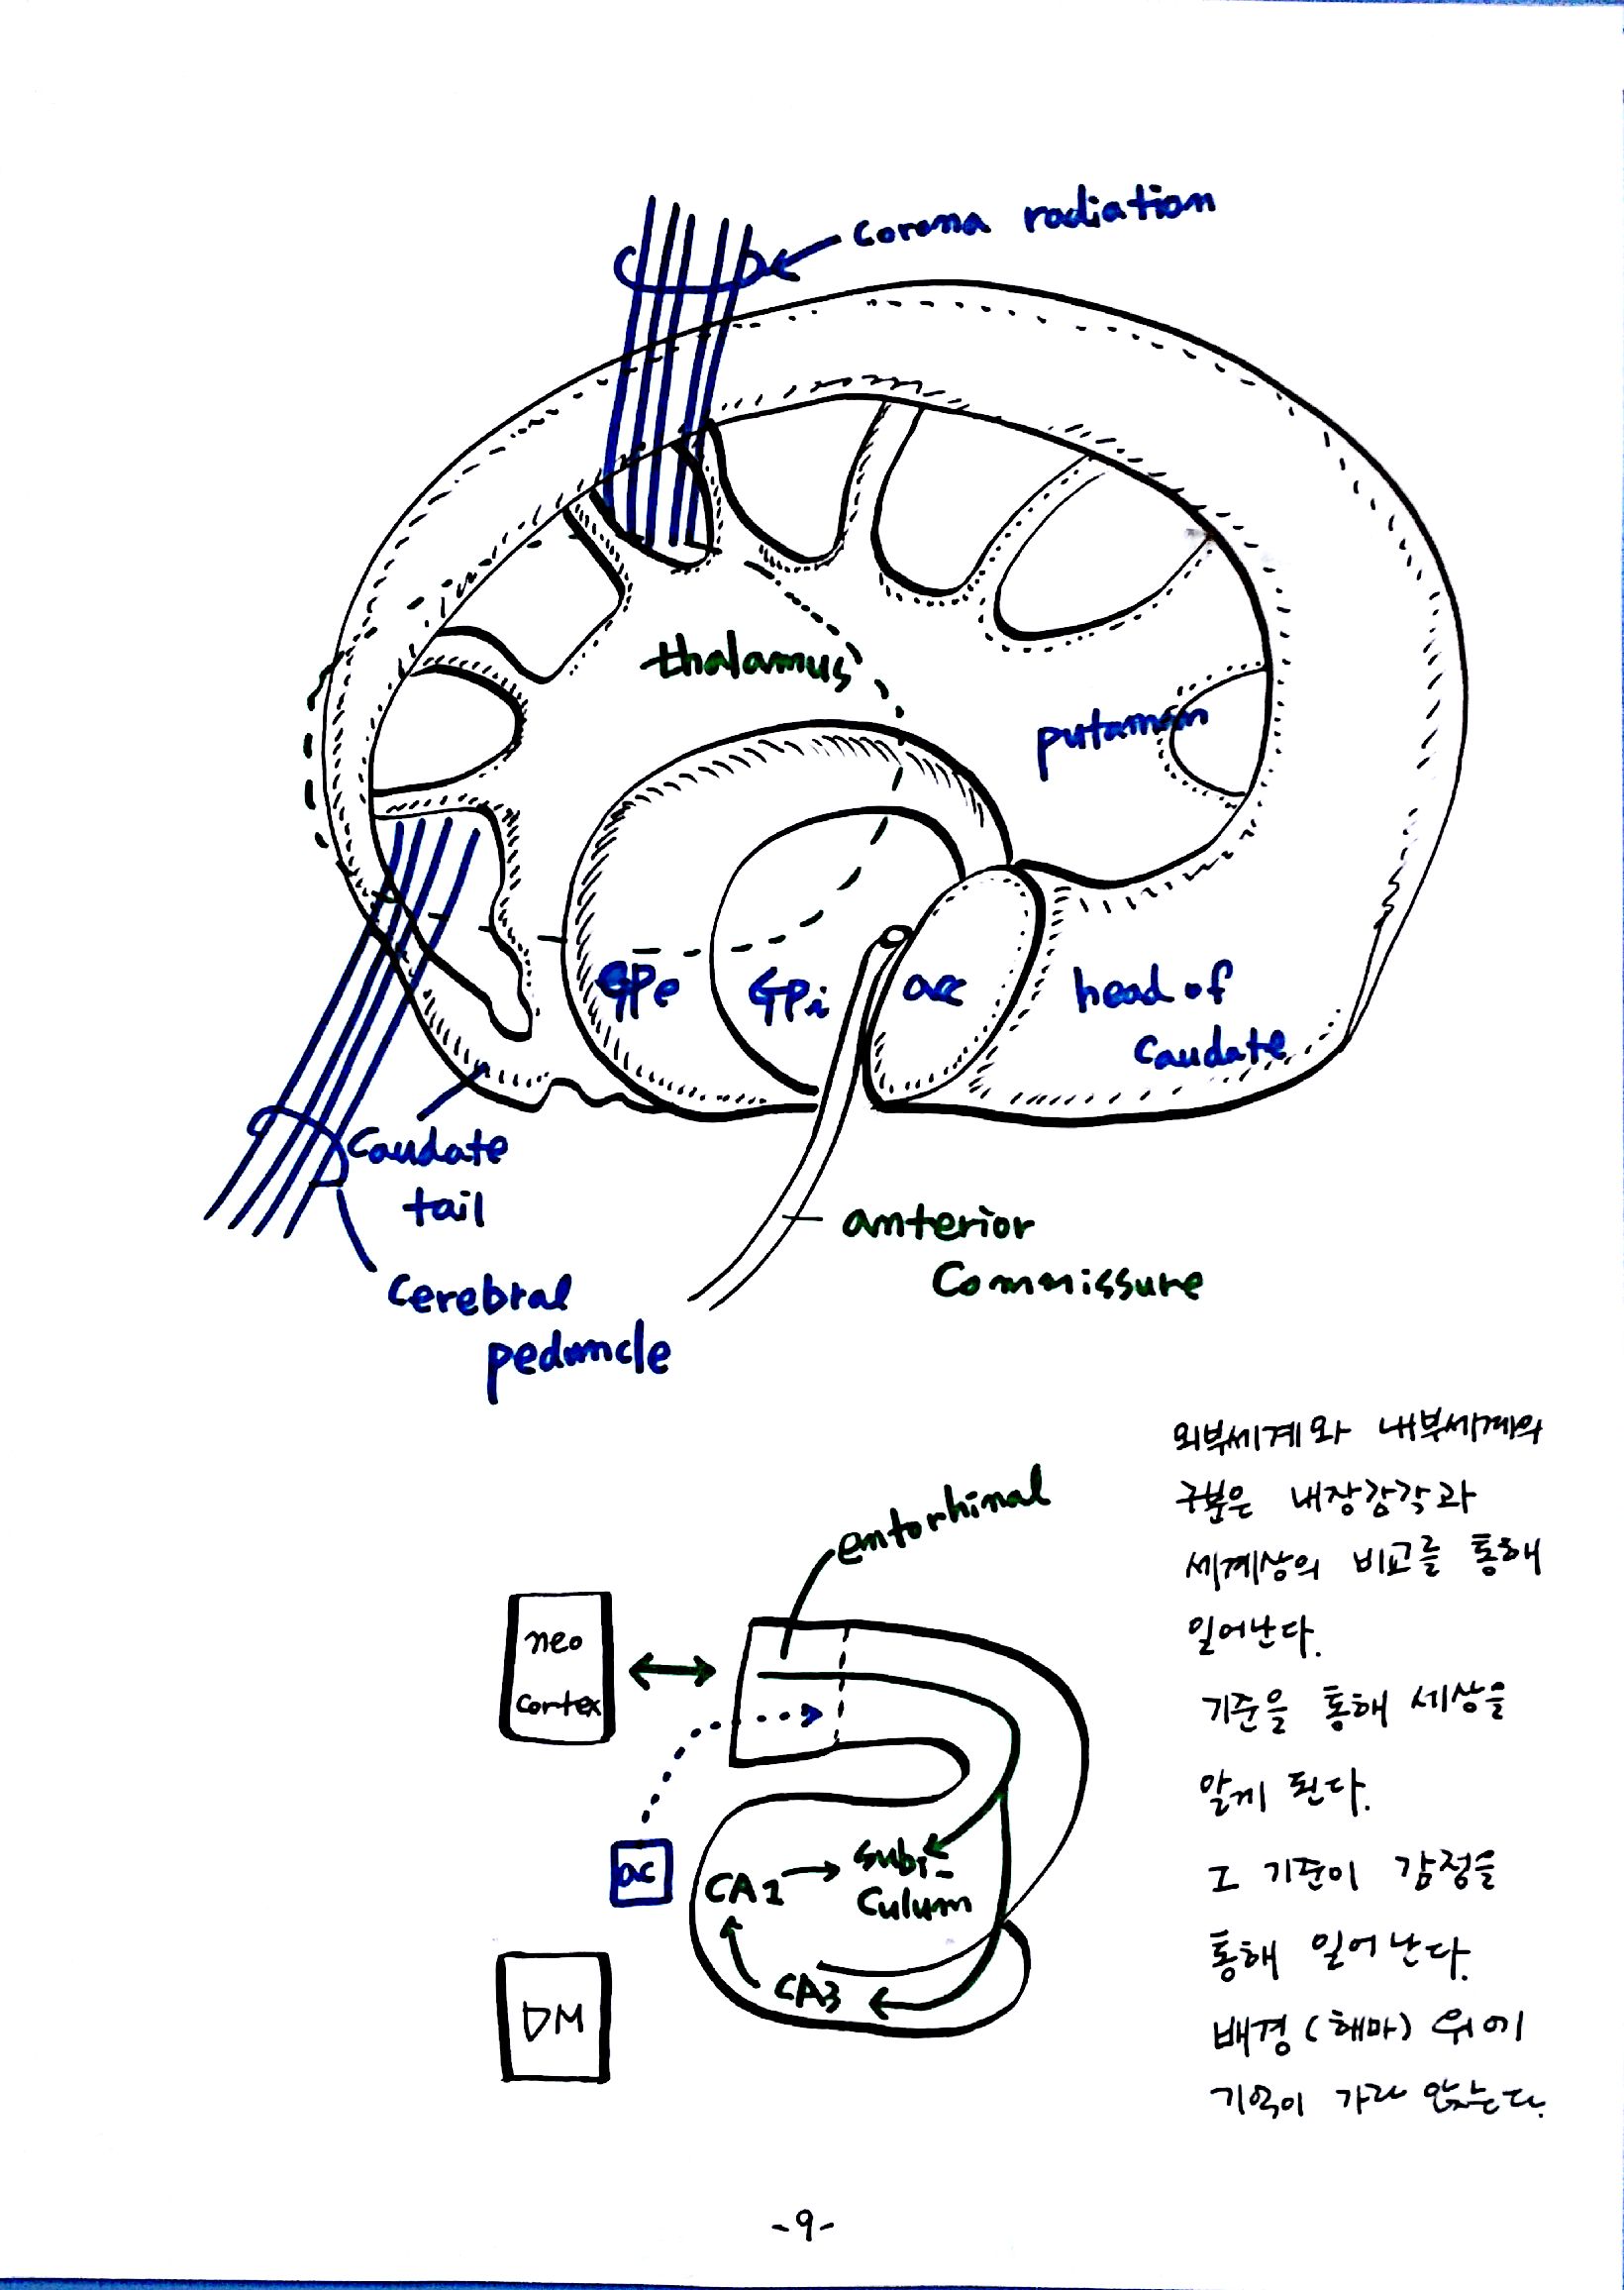 corona radiation
thalamus
putamen
GPe
GPi
acc
head of
caudate
caudate
tail
anterior
commissure
cerebral
peduncle
외부세계와 내부세계의
구분은 내장감각과
세계상의 비교를 통해
일어난다.
기준을 통해 세상을
알게 된다.
그 기준이 감정을
통해 일어난다.
배경(해마) 위에
기억이 가라 앉는다.
entorhinal
neo
cortex
ac
CA1
subi-
culum
CA3
DM
-9-